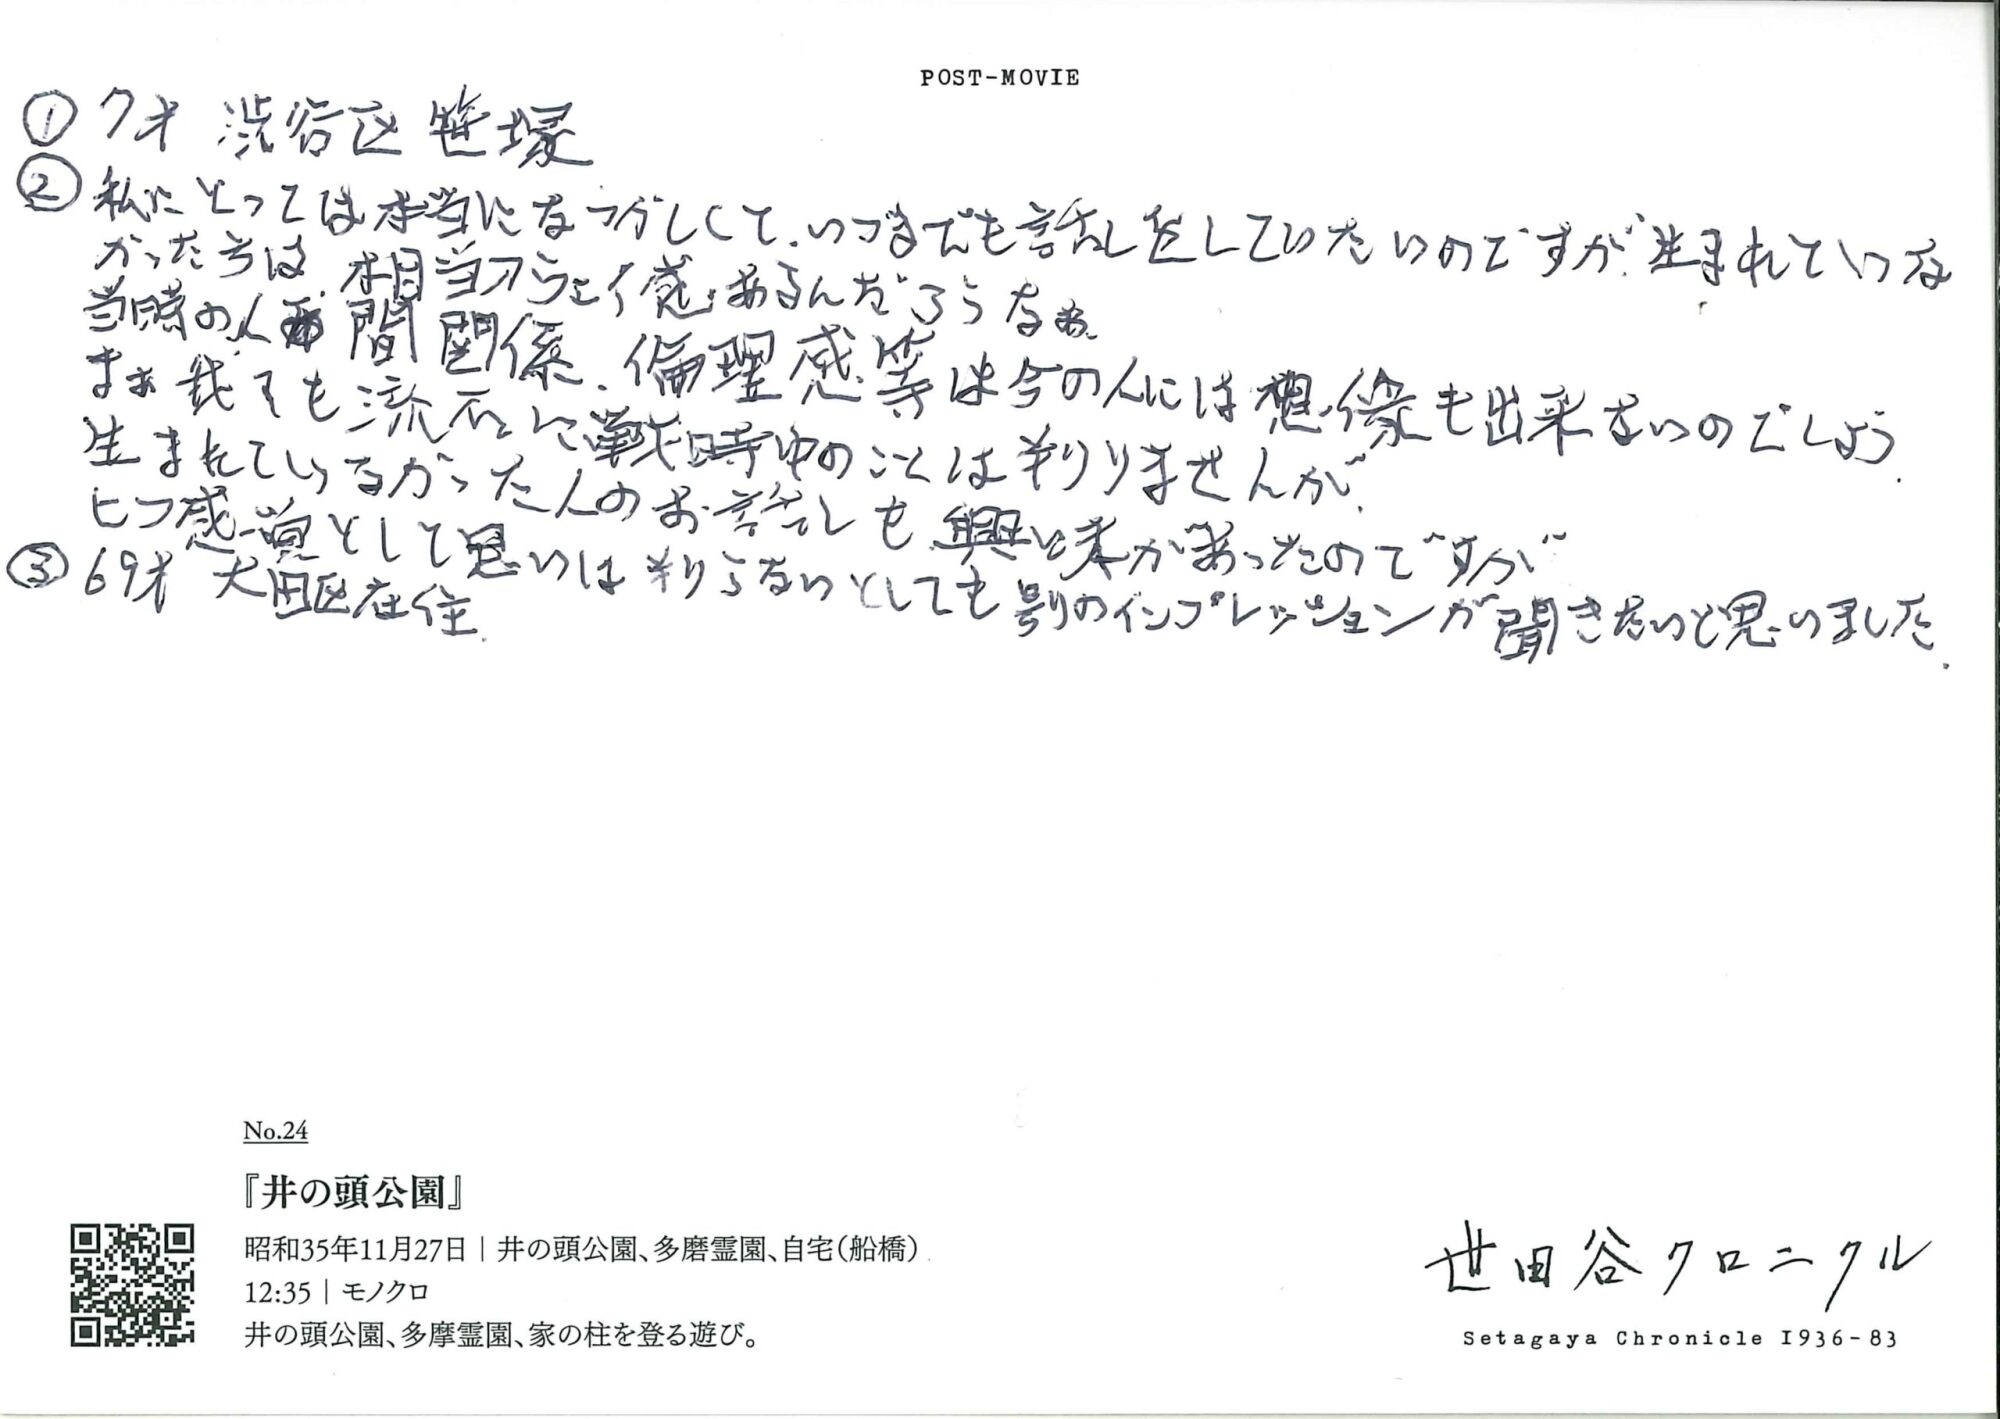 POST-MOVIE
① 7才 渋谷区 笹塚
② 私にとっては本当になつかしくて、いつまでも話しをしていたいのですが、生まれていな
かった方は、相当アウェイ感あるんだろうなぁ
当時の人間関係、倫理感等は今の人には想像も出来ないのでしょう。
まぁ我々も流石に戦時中のことは判りませんが、
生まれていなかった人のお話しも興味があったのですが
ヒフ感覚として思いは判らないとしても別のインプレッションが聞きたいと思いました。
③ 69才 大田区在住
No.24
『井の頭公園』
昭和35年11月27日｜井の頭公園、多磨霊園、自宅(船橋)
12:35｜モノクロ
井の頭公園、多摩霊園、家の柱を登る遊び。
世田谷クロニクル
Setagaya Chronicle 1936-83